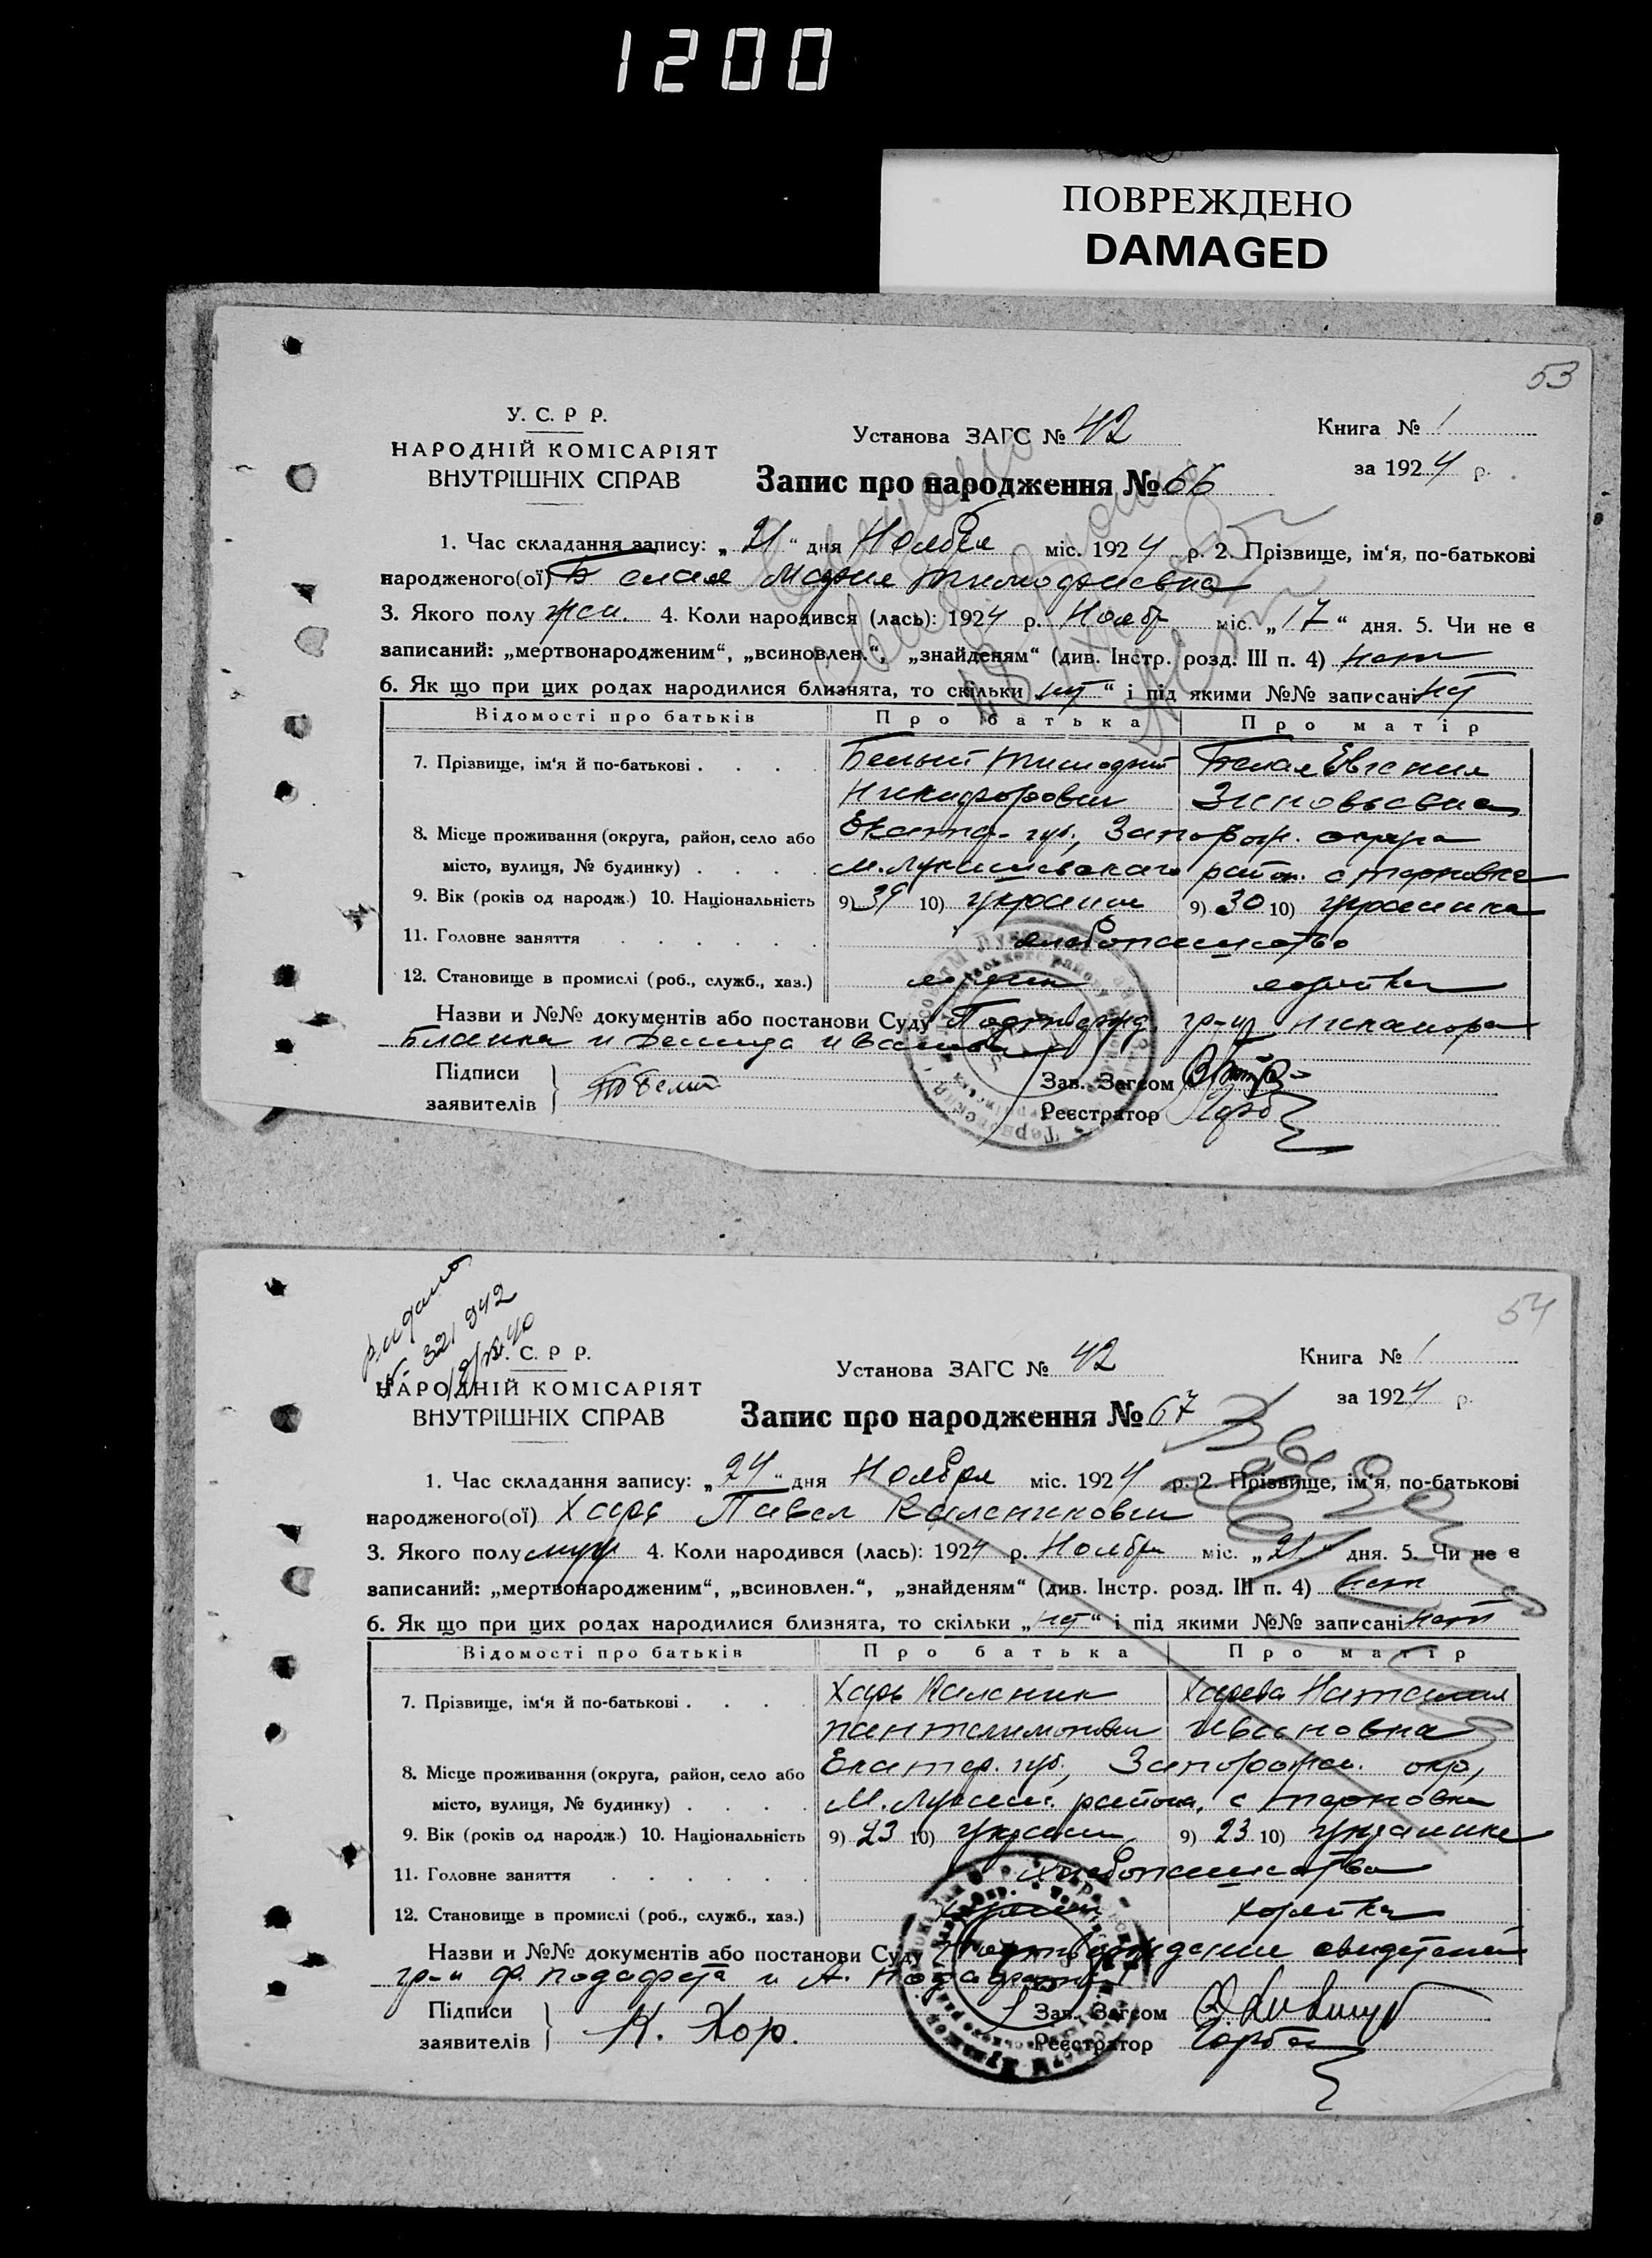 1200
ПОВРЕЖДЕНО
DAMAGED
53
У. С. Р Р.
НАРОДНІЙ КОМІСАРІЯТ
ВНУТРІШНІХ СПРАВ
Установа ЗАГС № 42
Книга № 1
за 1924 р.
Запис про народження № 66
1. Час складання запису: „21“ дня Ноября міс. 1924 р. 2. Прізвище, ім‘я, по-батькові
народженого(ої) Белая Мария Тимофиевна
3. Якого полу жен. 4. Коли народився (лась): 1924 р. Ноябр міс. „17“ дня. 5. Чи не є
записаний: „мертвонародженим“, „всиновлен.“, „знайденям“ (див. Інстр. розд. III п. 4) нет
6. Як що при цих родах народилися близнята, то скільки „нет“ і під якими №№ записані нет
Відомості про батьків Про батька Про матір
7. Прізвище, ім‘я й по-батькові . . . . Белый Тимофий Белая Евгения
Никифорович Зиновьевна
8. Місце проживання (округа, район, село або Екатер. губ., Запорож. округа
місто, вулиця, № будинку) . . . . М. Лукашевского район. с Терновка
9. Вік (років од народж.) 10. Національність 9) 10) украинец 9) 30 10) украинка
11. Головне заняття . . . . . . хлебопашество
12. Становище в промислі (роб., служб., хаз.) хозяин хозяйка
Назви и №№ документів або постанови Суду Подтвержд. гр-н Никанора
и Демида
Підписи
заявителів
Т Белий
Зав. Загсом
Реєстратор Горба
54
видано
321942
У. С. Р Р.
НАРОДНІЙ КОМІСАРІЯТ
ВНУТРІШНІХ СПРАВ
Установа ЗАГС № 42
Книга № 1
за 1924 р.
Запис про народження № 67
1. Час складання запису: „24“ дня Ноября міс. 1924 р. 2. Прізвище, ім‘я, по-батькові
народженого(ої) Харь Павел Каленикович
3. Якого полу муж 4. Коли народився (лась): 1924 р. Ноября міс. „21“ дня. 5. Чи не є
записаний: „мертвонародженим“, „всиновлен.“, „знайденям“ (див. Інстр. розд. III п. 4) нет
6. Як що при цих родах народилися близнята, то скільки „нет“ і під якими №№ записані нет
Відомості про батьків Про батька Про матір
7. Прізвище, ім‘я й по-батькові . . . . Харь Каленик Харева Наталия
Пантелимонович Ивановна
8. Місце проживання (округа, район, село або Екатер. губ., Запорожск. окр,
місто, вулиця, № будинку) . . . . М. Лукаш. района, с Терновка
9. Вік (років од народж.) 10. Національність 9) 23 10) украинец 9) 23 10) украинка
11. Головне заняття . . . . . . хлебопашество
12. Становище в промислі (роб., служб., хаз.) хозяин хозяйка
Назви и №№ документів або постанови Суду Подтверждение свидетелей
гр-н Ф. и А.
Підписи
заявителів
К. Хор.
Зав. Загсом
Реєстратор Горба